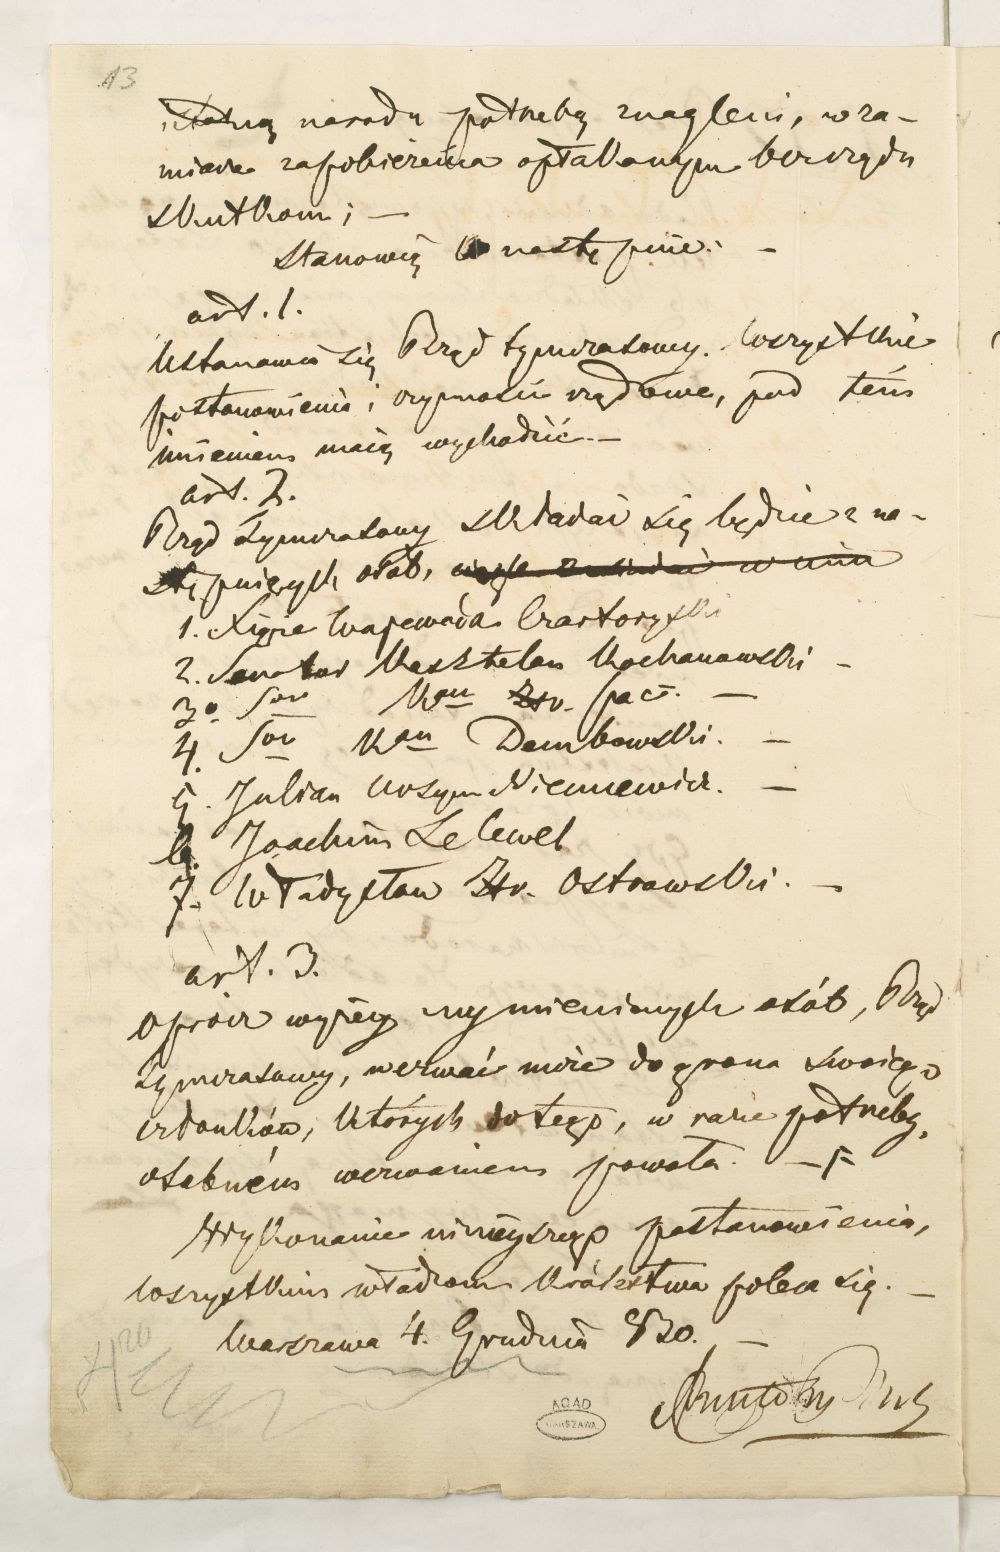 13
istotną narodu potrzebą znagleni, w za-
miarze zapobieżenia opłakanym bezrządu
skutkom; —
Stanowią co następuie: —
art. 1.
Ustanawia się Rząd tymczasowy. Wszystkie
postanowienia i czynności rządowe, pod tém
imieniem maią wychodzić. —
art. 2.
Rząd tymczasowy składać się będzie z na-
stępuiących osób,
1. Xiąże Woiewoda Czartoryski
2. Senator Kasztelan Kochanowski —
3o. Sor Kan Hr. Pac. —
4. Sor Kan Dembowski. —
5. Julian Ursyn Niemcewicz. —
6. Joachim Lelewel
7. Władysław Hr. Ostrowski. —
art. 3.
Oprócz wyżéy wymienionych osób, Rząd
tymczasowy, wezwać może do grona swoiego
członków, których do tego, w razie potrzeby,
osobném wezwaniem powoła. —
Wykonanie ninieyszego postanowienia,
wszystkim władzom Królestwa poleca się. —
Warszawa 4. Grudnia 830. —
AGAD
WARSZAWA